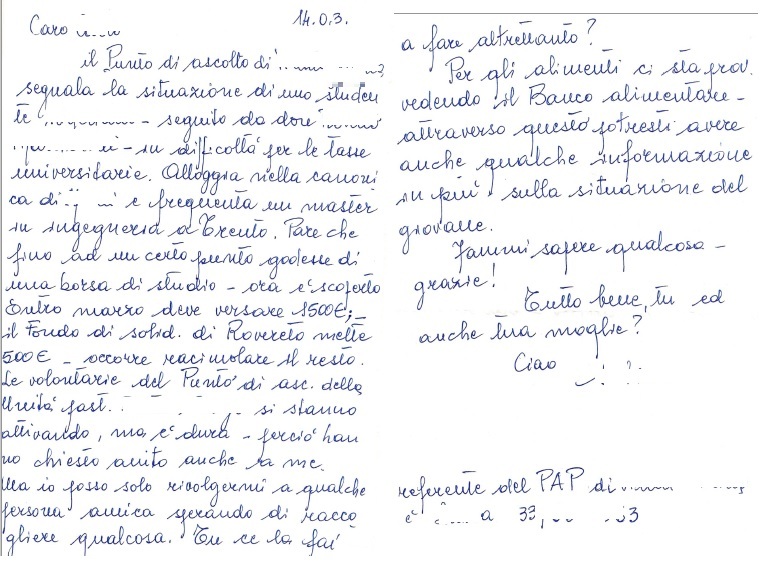 14.0.3.
Caro
il Punto di ascolto di
segnala la situazione di uno studen
te - seguito da
- in difficoltà per le tasse
universitarie. Alloggia nella canoni
ca di e frequenta un master
in ingegneria a Trento. Pare che
fino ad un certo punto godesse di
una borsa di studio - ora è scoperto
Entro marzo deve versare 1500€; -
il Fondo di solid. di Rovereto mette
500€ - occorre racimolare il resto.
Le volontarie del Punto di asc. della
Unità past. si stanno
attivando, ma è dura - perciò han
no chiesto aiuto anche a me.
Ma io posso solo rivolgermi a qualche
persona amica sperando di racco
gliere qualcosa. Tu ce la fai
a fare altrettanto?
Per gli alimenti ci sta prov.
vedendo il Banco alimentare -
attraverso questo potresti avere
anche qualche informazione
in più sulla situazione del
giovane.
Fammi sapere qualcosa -
grazie!
Tutto bene, tu ed
anche tua moglie?
Ciao
referente del PAP di
è a 33, 3